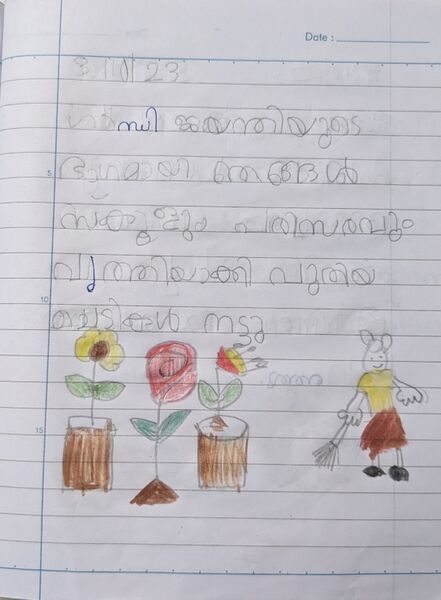 Date :
3/10/23
ഗാന്ധി ജയന്തിയുടെ
5 ഭാഗമായി ഞങ്ങൾ
സ്ക്കൂളും പരിസരവും
വൃത്തിയാക്കി പുതിയ
10 ചെടികൾ നട്ടു
15